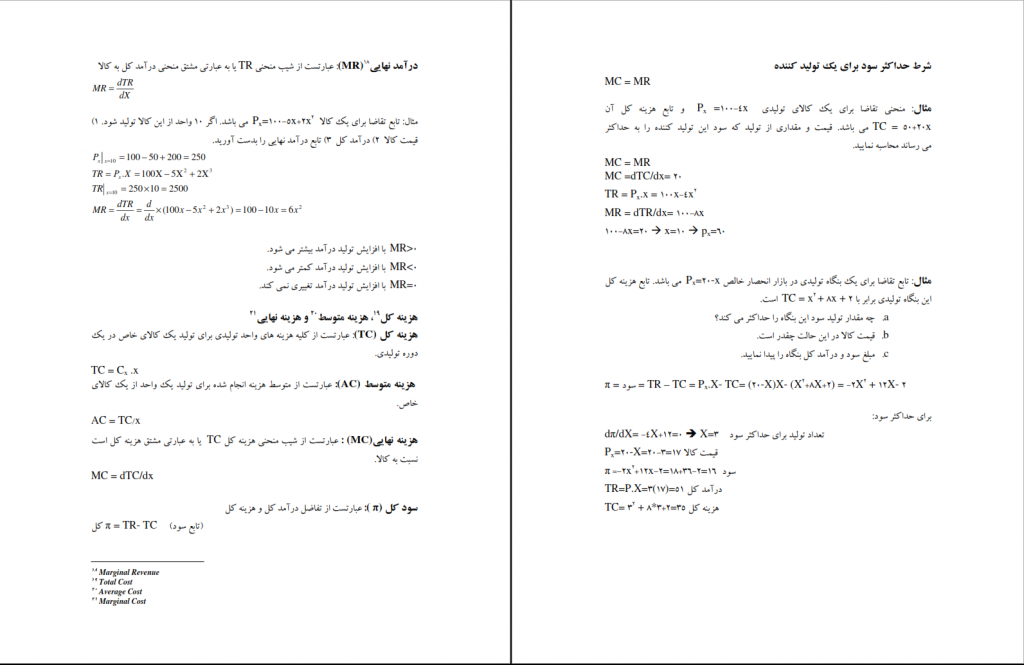 درآمد نهایی۱۸(MR): عبارتست از شیب منحنی TR یا به عبارتی مشتق منحنی درآمد کل به کالا
MR = dTR/dX
مثال: تابع تقاضا برای یک کالا Px=۱۰۰-۵x+۲x۲ می باشد. اگر ۱۰ واحد از این کالا تولید شود. ۱)
قیمت کالا ۲) درآمد کل ۳) تابع درآمد نهایی را بدست آورید.
Px|x=10 = 100 − 50 + 200 = 250
TR = Px.X = 100X − 5X² + 2X³
TR|x=10 = 250×10 = 2500
MR = dTR/dx = d/dx ×(100x − 5x² + 2x³) = 100 − 10x = 6x²
MR>۰ با افزایش تولید درآمد بیشتر می شود.
MR<۰ با افزایش تولید درآمد کمتر می شود.
MR=۰ با افزایش تولید درآمد تغییری نمی کند.
هزینه کل۱۹، هزینه متوسط۲۰ و هزینه نهایی۲۱
هزینه کل (TC): عبارتست از کلیه هزینه های واحد تولیدی برای تولید یک کالای خاص در یک
دوره تولیدی.
TC = Cx .x
هزینه متوسط (AC): عبارتست از متوسط هزینه انجام شده برای تولید یک واحد از یک کالای
خاص.
AC = TC/x
هزینه نهایی(MC) : عبارتست از شیب منحنی هزینه کل TC یا به عبارتی مشتق هزینه کل است
نسبت به کالا.
MC = dTC/dx
سود کل (π ): عبارتست از تفاضل درآمد کل و هزینه کل
کل π = TR- TC (تابع سود)
۱۸ Marginal Revenue
۱۹ Total Cost
۲۰ Average Cost
۲۱ Marginal Cost
شرط حداکثر سود برای یک تولید کننده
MC = MR
مثال: منحنی تقاضا برای یک کالای تولیدی Px =۱۰۰-٤x و تابع هزینه کل آن
TC = ۵۰+۲۰x می باشد. قیمت و مقداری از تولید که سود این تولید کننده را به حداکثر
می رساند محاسبه نمایید.
MC = MR
MC =dTC/dx= ۲۰
TR = Px.x = ۱۰۰x-٤x۲
MR = dTR/dx= ۱۰۰-۸x
۱۰۰-۸x=۲۰ → x=۱۰ → px=٦۰
مثال: تابع تقاضا برای یک بنگاه تولیدی در بازار انحصار خالص Px=۲۰-x می باشد. تابع هزینه کل
این بنگاه تولیدی برابر با TC = x۲ + ۸x + ۲ است.
a. چه مقدار تولید سود این بنگاه را حداکثر می کند؟
b. قیمت کالا در این حالت چقدر است.
c. مبلغ سود و درآمد کل بنگاه را پیدا نمایید.
π = سود = TR – TC = Px.X- TC= (۲۰-X)X- (X۲+۸X+۲) = -۲X۲ + ۱۲X- ۲
برای حداکثر سود:
dπ/dX= -٤X+۱۲=۰ → X=۳ تعداد تولید برای حداکثر سود
Px=۲۰-X=۲۰-۳=۱۷ قیمت کالا
π =-۲x۲+۱۲x-۲=۱۸+۳٦-۲=۱٦ سود
TR=P.X=۳(۱۷)=۵۱ درآمد کل
TC= ۳۲ + ۸*۳+۲=۳۵ هزینه کل